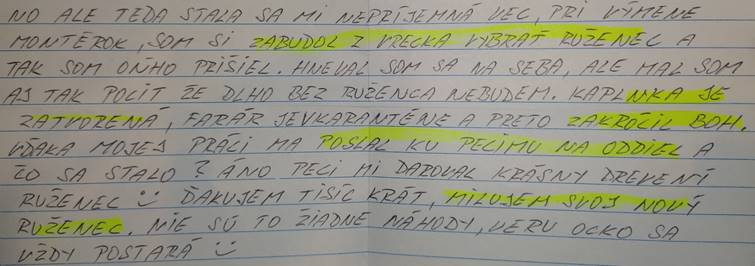 NO ALE TEDA STALA SA MI NEPRÍJEMNÁ VEC, PRI VÝMENE
MONTÉROK, SOM SI ZABUDOL Z VRECKA VYBRAŤ RUŽENEC A
TAK SOM OŇHO PRIŠIEL. HNEVAL SOM SA NA SEBA, ALE MAL SOM
AJ TAK POCIT ŽE DLHO BEZ RUŽENCA NEBUDEM. KAPLNKA JE
ZATVORENÁ, FARÁR JE V KARANTÉNE A PRETO ZAKROČIL BOH.
VĎAKA MOJEJ PRÁCI MA POSLAL KU PECIMU NA ODDIEL A
ČO SA STALO? ÁNO PECI MI DAROVAL KRÁSNY DREVENÝ
RUŽENEC :) ĎAKUJEM TISÍC KRÁT, MILUJEM SVOJ NOVÝ
RUŽENEC. NIE SÚ TO ŽIADNE NÁHODY, VERU OCKO SA
VŽDY POSTARÁ :)